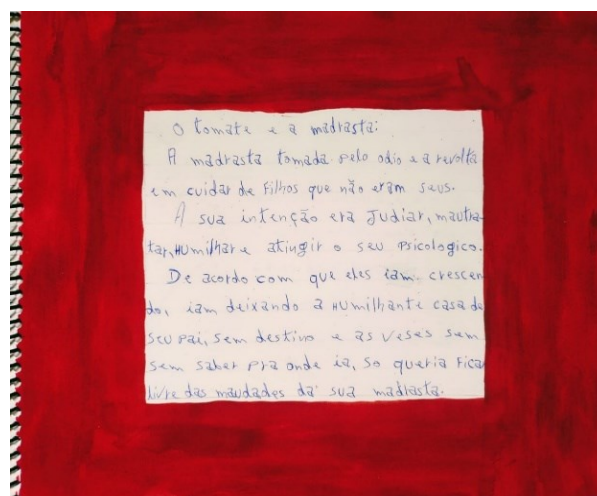 O tomate e a madrasta:
A madrasta tomada pelo odio e a revolta
em cuidar de Filhos que não eram seus.
A sua intenção era Judiar, mautra-
tar, HUmilhar e atingir o seu Psicologico.
De acordo com que eles iam crescen
do, iam deixando a HUmilhante casa de
seu pai, sem destino e as veses sem
sem saber pra onde ia, so queria Fica
livre das maudades da sua madrasta.